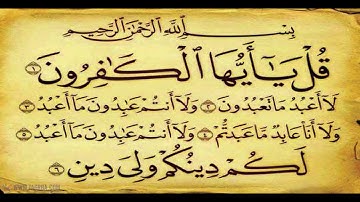 بِسْمِ اللَّهِ الرَّحْمَٰنِ الرَّحِيمِ
قُلْ يَا أَيُّهَا ٱلْكَٰفِرُونَ ١
لَا أَعْبُدُ مَا تَعْبُدُونَ ٢ وَلَا أَنتُمْ عَٰبِدُونَ مَا أَعْبُدُ ٣
وَلَا أَنَا عَابِدٌ مَّا عَبَدتُّمْ ٤ وَلَا أَنتُمْ عَٰبِدُونَ مَا أَعْبُدُ ٥
لَكُمْ دِينُكُمْ وَلِيَ دِينِ ٦